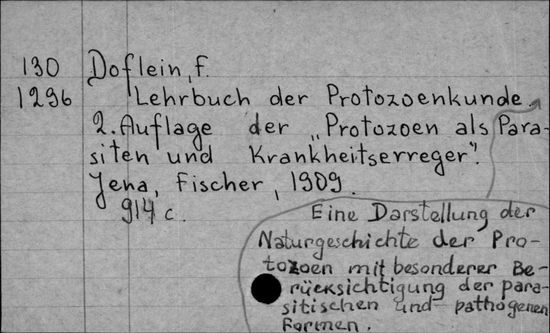 130 Doflein, F.
1296 Lehrbuch der Protozoenkunde.
2. Auflage der „Protozoen als Para-
siten und Krankheitserreger".
Jena, Fischer, 1909.
914 c.
Eine Darstellung der
Naturgeschichte der Pro-
tozoen mit besonderer Be-
rücksichtigung der para-
sitischen und pathogenen
Formen.